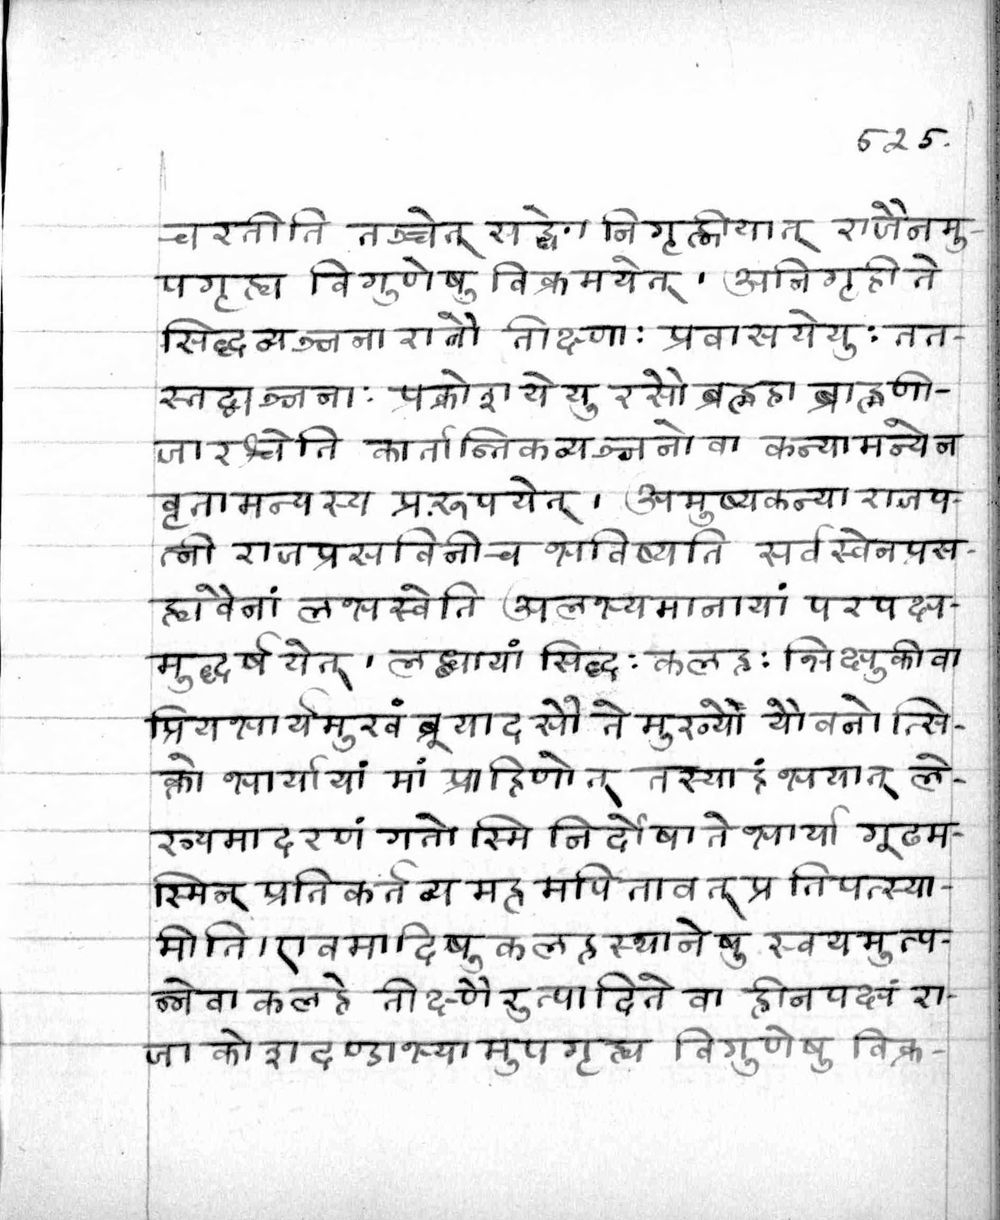 525.
चरतीति तञ्चेत् सङ्घो निगृह्णीयात् राजैनमु-
पगृह्य विगुणेषु विक्रमयेत् । अनिगृहीते
सिद्धव्यञ्जना रात्रौ तीक्ष्णाः प्रवासयेयुः तत-
स्तद्व्यञ्जनाः प्रक्रोशयेयुरसौ ब्रह्महा ब्राह्मणी-
जारश्चेति कार्तान्तिकव्यञ्जनो वा कन्यामन्येन
वृतामन्यस्य प्ररूपयेत् । अमुष्यकन्या राजप-
त्नी राजप्रसविनी च भविष्यति सर्वस्वेन प्रस-
ह्य वैनां लभस्वेति अलभ्यमानायां परपक्ष-
मुद्धर्षयेत् । लब्धायां सिद्धः कलहः भिक्षुकी वा
प्रियभार्यमुख्यं ब्रूयादसौ ते मुख्यो यौवनोत्सि-
क्तो भार्यायां मां प्राहिणोत् तस्याहं भयात् ले-
ख्यमादरणं गतोस्मि निर्दोषा ते भार्या गूढम-
स्मिन् प्रतिकर्तव्यमहमपि तावत् प्रतिपत्स्या-
मीति । एवमादिषु कलहस्थानेषु स्वयमुत्प-
न्ने वा कलहे तीक्ष्णैरुत्पादिते वा हीनपक्षं रा-
जा कोशदण्डाभ्यामुपगृह्य विगुणेषु विक्र-